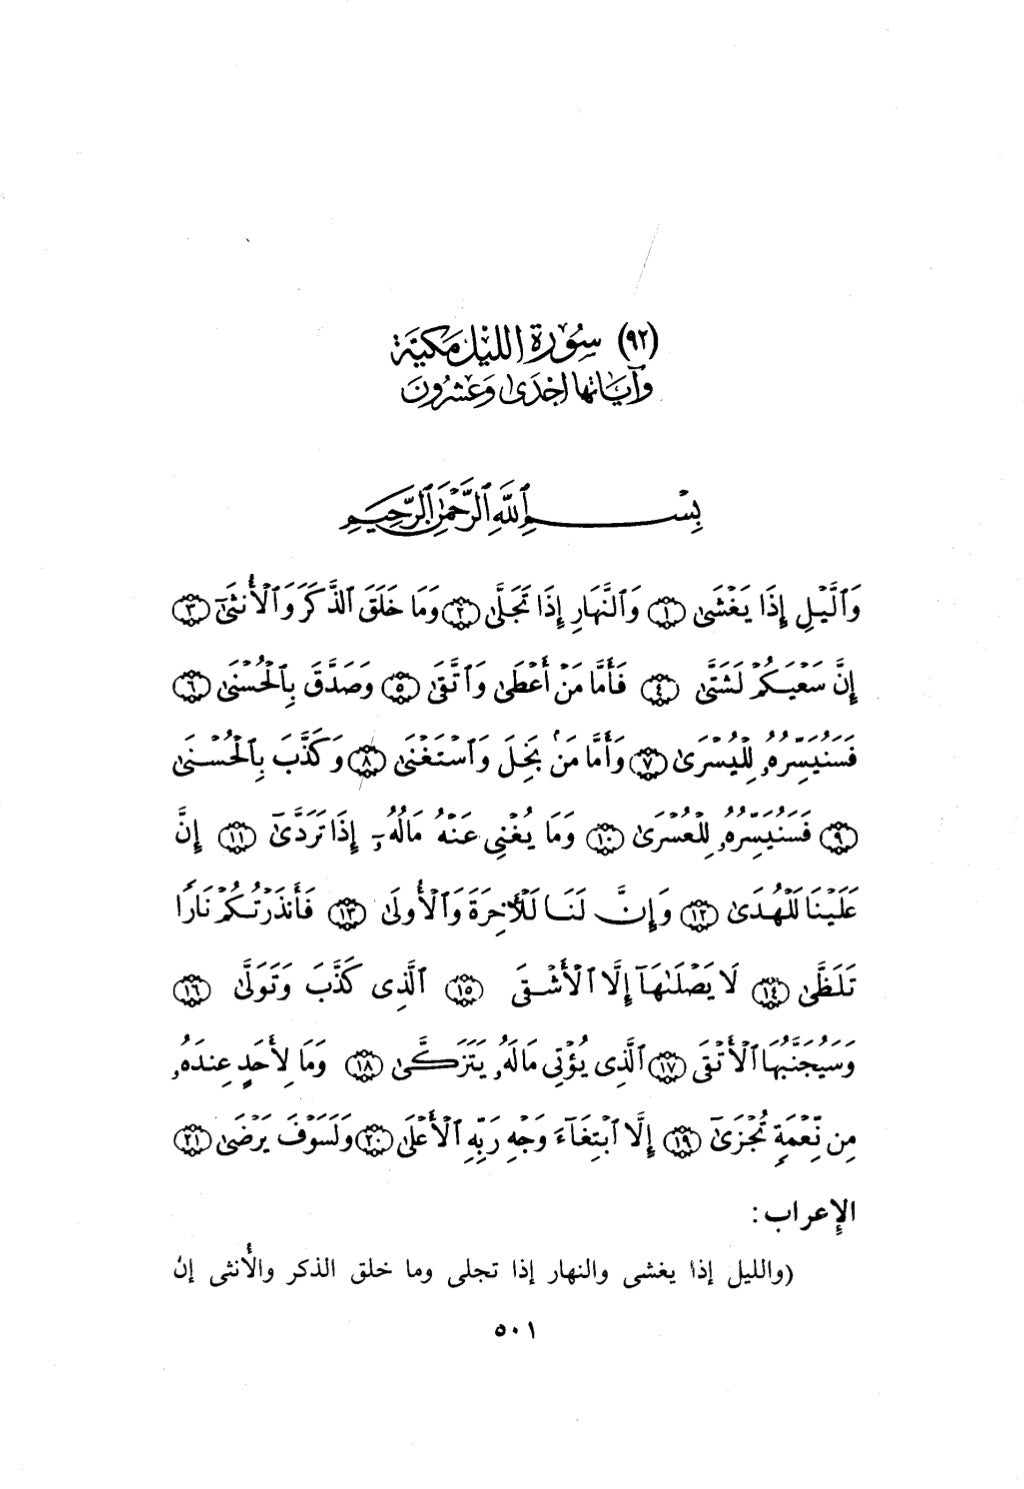 (٩٢) سُورَة الليْل مَكيَّة
وآيَاتها اِحْدَىٰ وَعشرُونَ
بِسْمِ ٱللَّهِ ٱلرَّحْمَٰنِ ٱلرَّحِيمِ
وَٱلَّيْلِ إِذَا يَغْشَىٰ ﴿١﴾ وَٱلنَّهَارِ إِذَا تَجَلَّىٰ ﴿٢﴾ وَمَا خَلَقَ ٱلذَّكَرَ وَٱلْأُنثَىٰٓ ﴿٣﴾
إِنَّ سَعْيَكُمْ لَشَتَّىٰ ﴿٤﴾ فَأَمَّا مَنْ أَعْطَىٰ وَٱتَّقَىٰ ﴿٥﴾ وَصَدَّقَ بِٱلْحُسْنَىٰ ﴿٦﴾
فَسَنُيَسِّرُهُۥ لِلْيُسْرَىٰ ﴿٧﴾ وَأَمَّا مَنۢ بَخِلَ وَٱسْتَغْنَىٰ ﴿٨﴾ وَكَذَّبَ بِٱلْحُسْنَىٰ
﴿٩﴾ فَسَنُيَسِّرُهُۥ لِلْعُسْرَىٰ ﴿١٠﴾ وَمَا يُغْنِى عَنْهُ مَالُهُۥٓ إِذَا تَرَدَّىٰٓ ﴿١١﴾ إِنَّ
عَلَيْنَا لَلْهُدَىٰ ﴿١٢﴾ وَإِنَّ لَنَا لَلْأَخِرَةَ وَٱلْأُولَىٰ ﴿١٣﴾ فَأَنذَرْتُكُمْ نَارًا
تَلَظَّىٰ ﴿١٤﴾ لَا يَصْلَىٰهَآ إِلَّا ٱلْأَشْقَى ﴿١٥﴾ ٱلَّذِى كَذَّبَ وَتَوَلَّىٰ ﴿١٦﴾
وَسَيُجَنَّبُهَا ٱلْأَتْقَى ﴿١٧﴾ ٱلَّذِى يُؤْتِى مَالَهُۥ يَتَزَكَّىٰ ﴿١٨﴾ وَمَا لِأَحَدٍ عِندَهُۥ
مِن نِّعْمَةٍ تُجْزَىٰٓ ﴿١٩﴾ إِلَّا ٱبْتِغَآءَ وَجْهِ رَبِّهِ ٱلْأَعْلَىٰ ﴿٢٠﴾ وَلَسَوْفَ يَرْضَىٰ ﴿٢١﴾
الإِعراب:
(والليل إذا يغشى والنهار إذا تجلى وما خلق الذكر والأُنثى إن
٥٠١